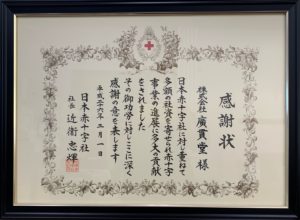 感謝状
株式会社 廣貫堂 様
日本赤十字社に対し重ねて
多額の社資を寄せられ赤十字
事業の進展に多大の貢献
をされました
その御功労に対しここに深く
感謝の意を表します
平成二十六年 月一日
日本赤十字社
社長 近衛忠煇